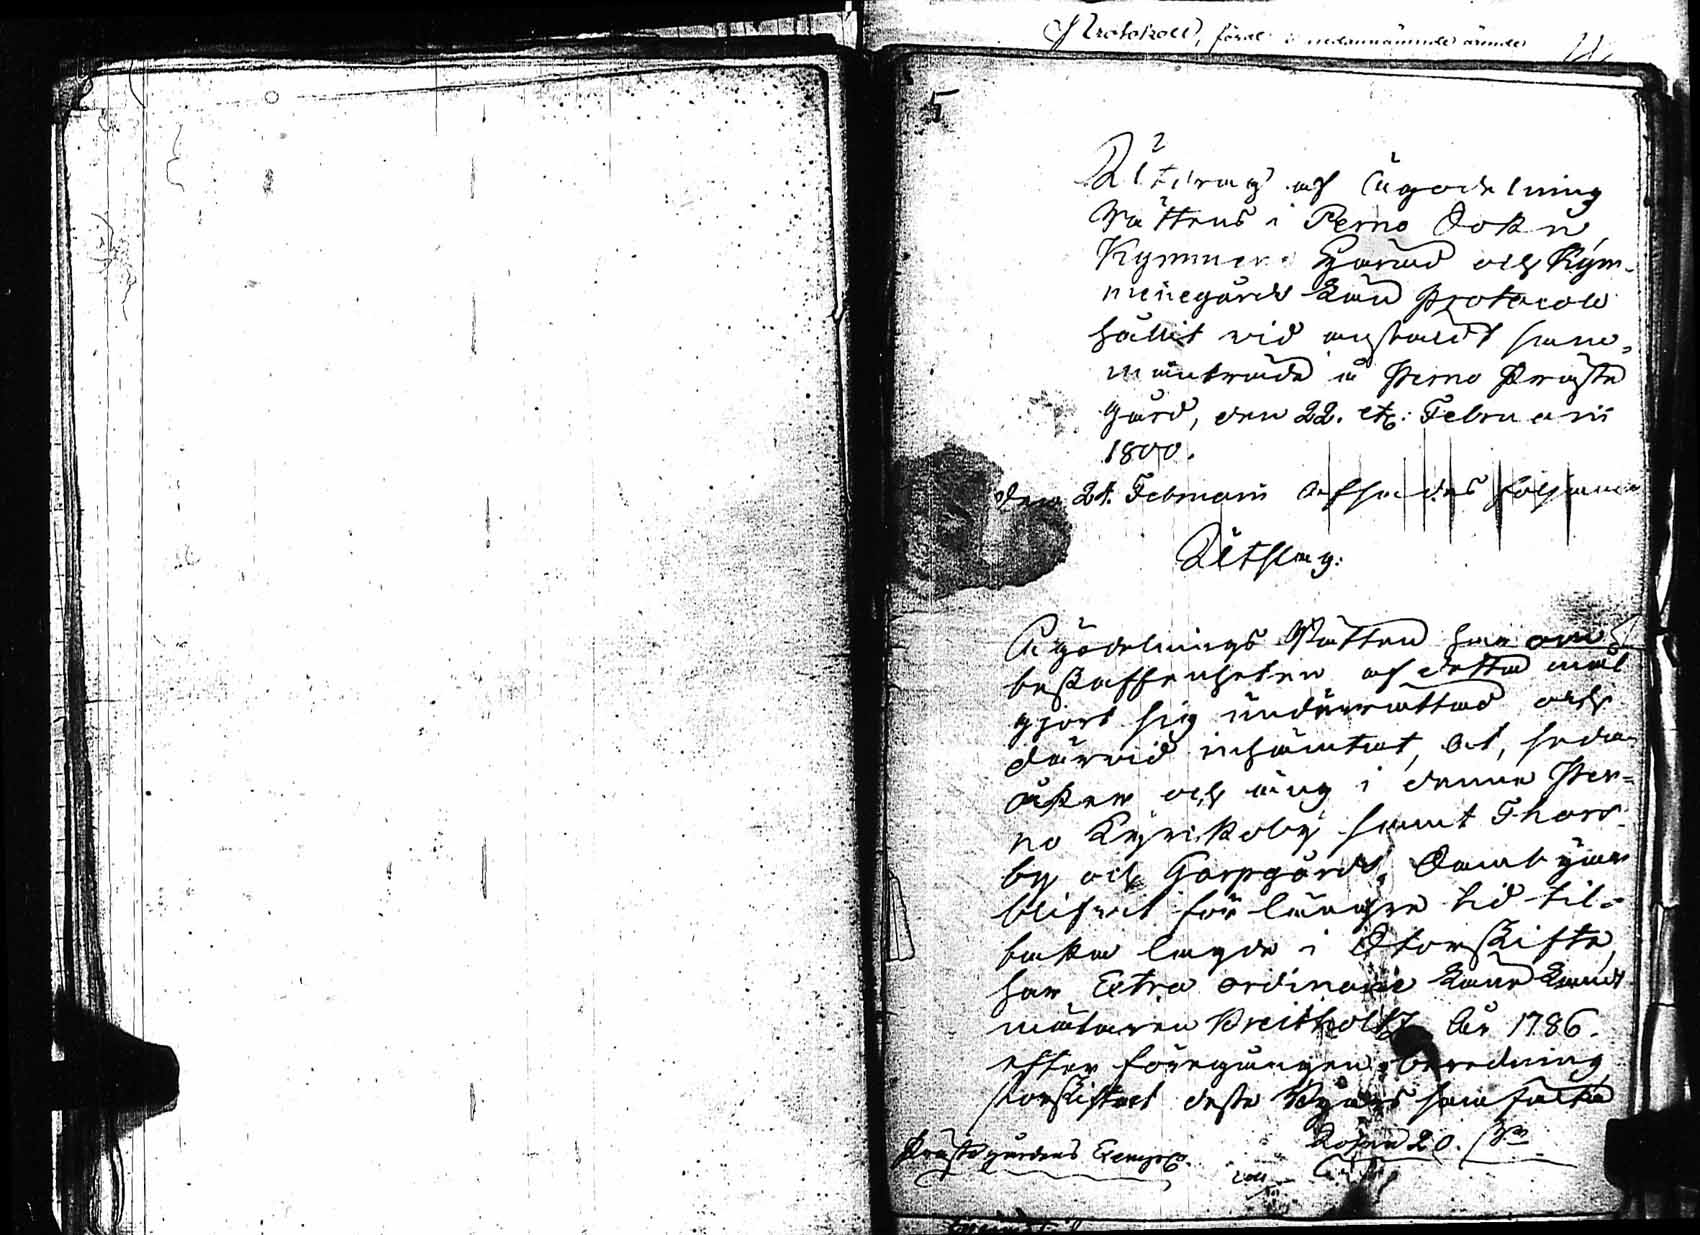 Protokoll, förd i nedannämnde ärender
5
Utdrag af Ägodelning
Rättens i Perno Sokn
Kymmene Härad och Kym-
menegårds Län Protocoll
hållit vid anstäldt sam-
manträde å Perno Präste
gård, den 22. etc: Februarii
1800.
Den 24. Februarii afsades följande
Utslag:
Ägodelnings Rätten har om
beskaffenheten af detta mål
gjort sig underrättad och
därvid inhämtat, at, sedan
åker och äng i denne Per-
no Kyrckoby samt Thors-
by och Garpgårds Sambyar
blifvit för längre tid til-
baka lagde i Storskifte,
har Extra ordinarie Landt
mätaren Breitholtz år 1786.
efter föregången beredning
storskiftat desse Byars samfälta
Prästegårdens Exempl.
20.